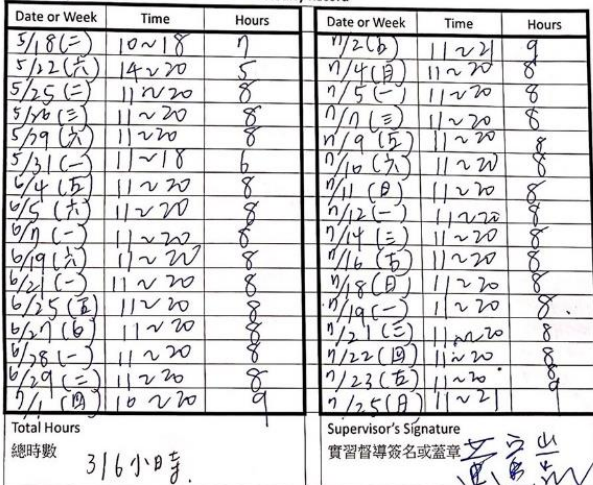 Date or Week Time Hours
5/18(二) 10~18 7
5/22(六) 14~20 5
5/25(二) 11~20 8
5/26(三) 11~20 8
5/29(六) 11~20 8
5/31(一) 11~18 6
6/4(五) 11~20 8
6/5(六) 11~20 8
6/7(一) 11~20 8
6/19(六) 11~20 8
6/21(一) 11~20 8
6/25(五) 11~20 8
6/27(日) 11~20 8
6/28(一) 11~20 8
6/29(二) 11~20 8
7/1(四) 10~20 9
Total Hours
總時數
316小時.
Date or Week Time Hours
7/2(五) 11~21 9
7/4(日) 11~20 8
7/5(一) 11~20 8
7/7(三) 11~20 8
7/9(五) 11~20 8
7/10(六) 11~20 8
7/11(日) 11~20 8
7/12(一) 11~20 8
7/14(三) 11~20 8
7/16(五) 11~20 8
7/18(日) 11~20 8
7/19(一) 11~20 8
7/21(三) 11~20 8
7/22(四) 11~20 8
7/23(五) 11~20 8
7/25(日) 11~21 9
Supervisor's Signature
實習督導簽名或蓋章